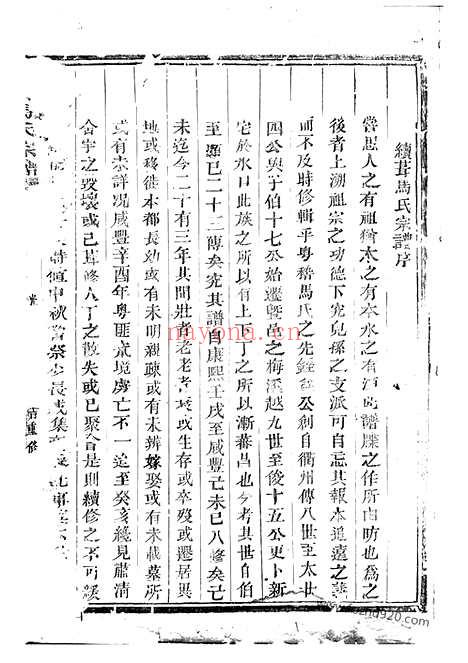 續葺馬氏宗譜序
嘗思人之有祖猶木之有本水之有 譜牒之作所由昉也為之
後者上溯祖宗之功德下究兒孫之支派可自忘其報本追遠之善
而不及時修輯乎粵稽馬氏之先 公創自衢州傳八世至太世
四公與子伯十七公始遷暨邑之梅溪越九世至俊十五公更卜新
宅於水口此族之所以上下丁之所以漸蕃昌也今考其世自伯
至 已二十二傳矣究其譜自康熙壬戌至咸豐己未已八修矣己
未迄今二十有三年其間壯者老老者 或生存或卒歿或遷居異
地或移徙本都長幼或有未明親疎或有未辨嫁娶或有未載墓所
或有未詳况咸豐辛酉年粵匪 境虜亡不一迨至癸亥纔見肅清
舍宇之毀壞或已葺修人丁之散失或已聚會是則續修之不可緩
時值中秋嘗祭少長咸集
馬氏宗譜
重修
nayona.cn
yigu5920.com